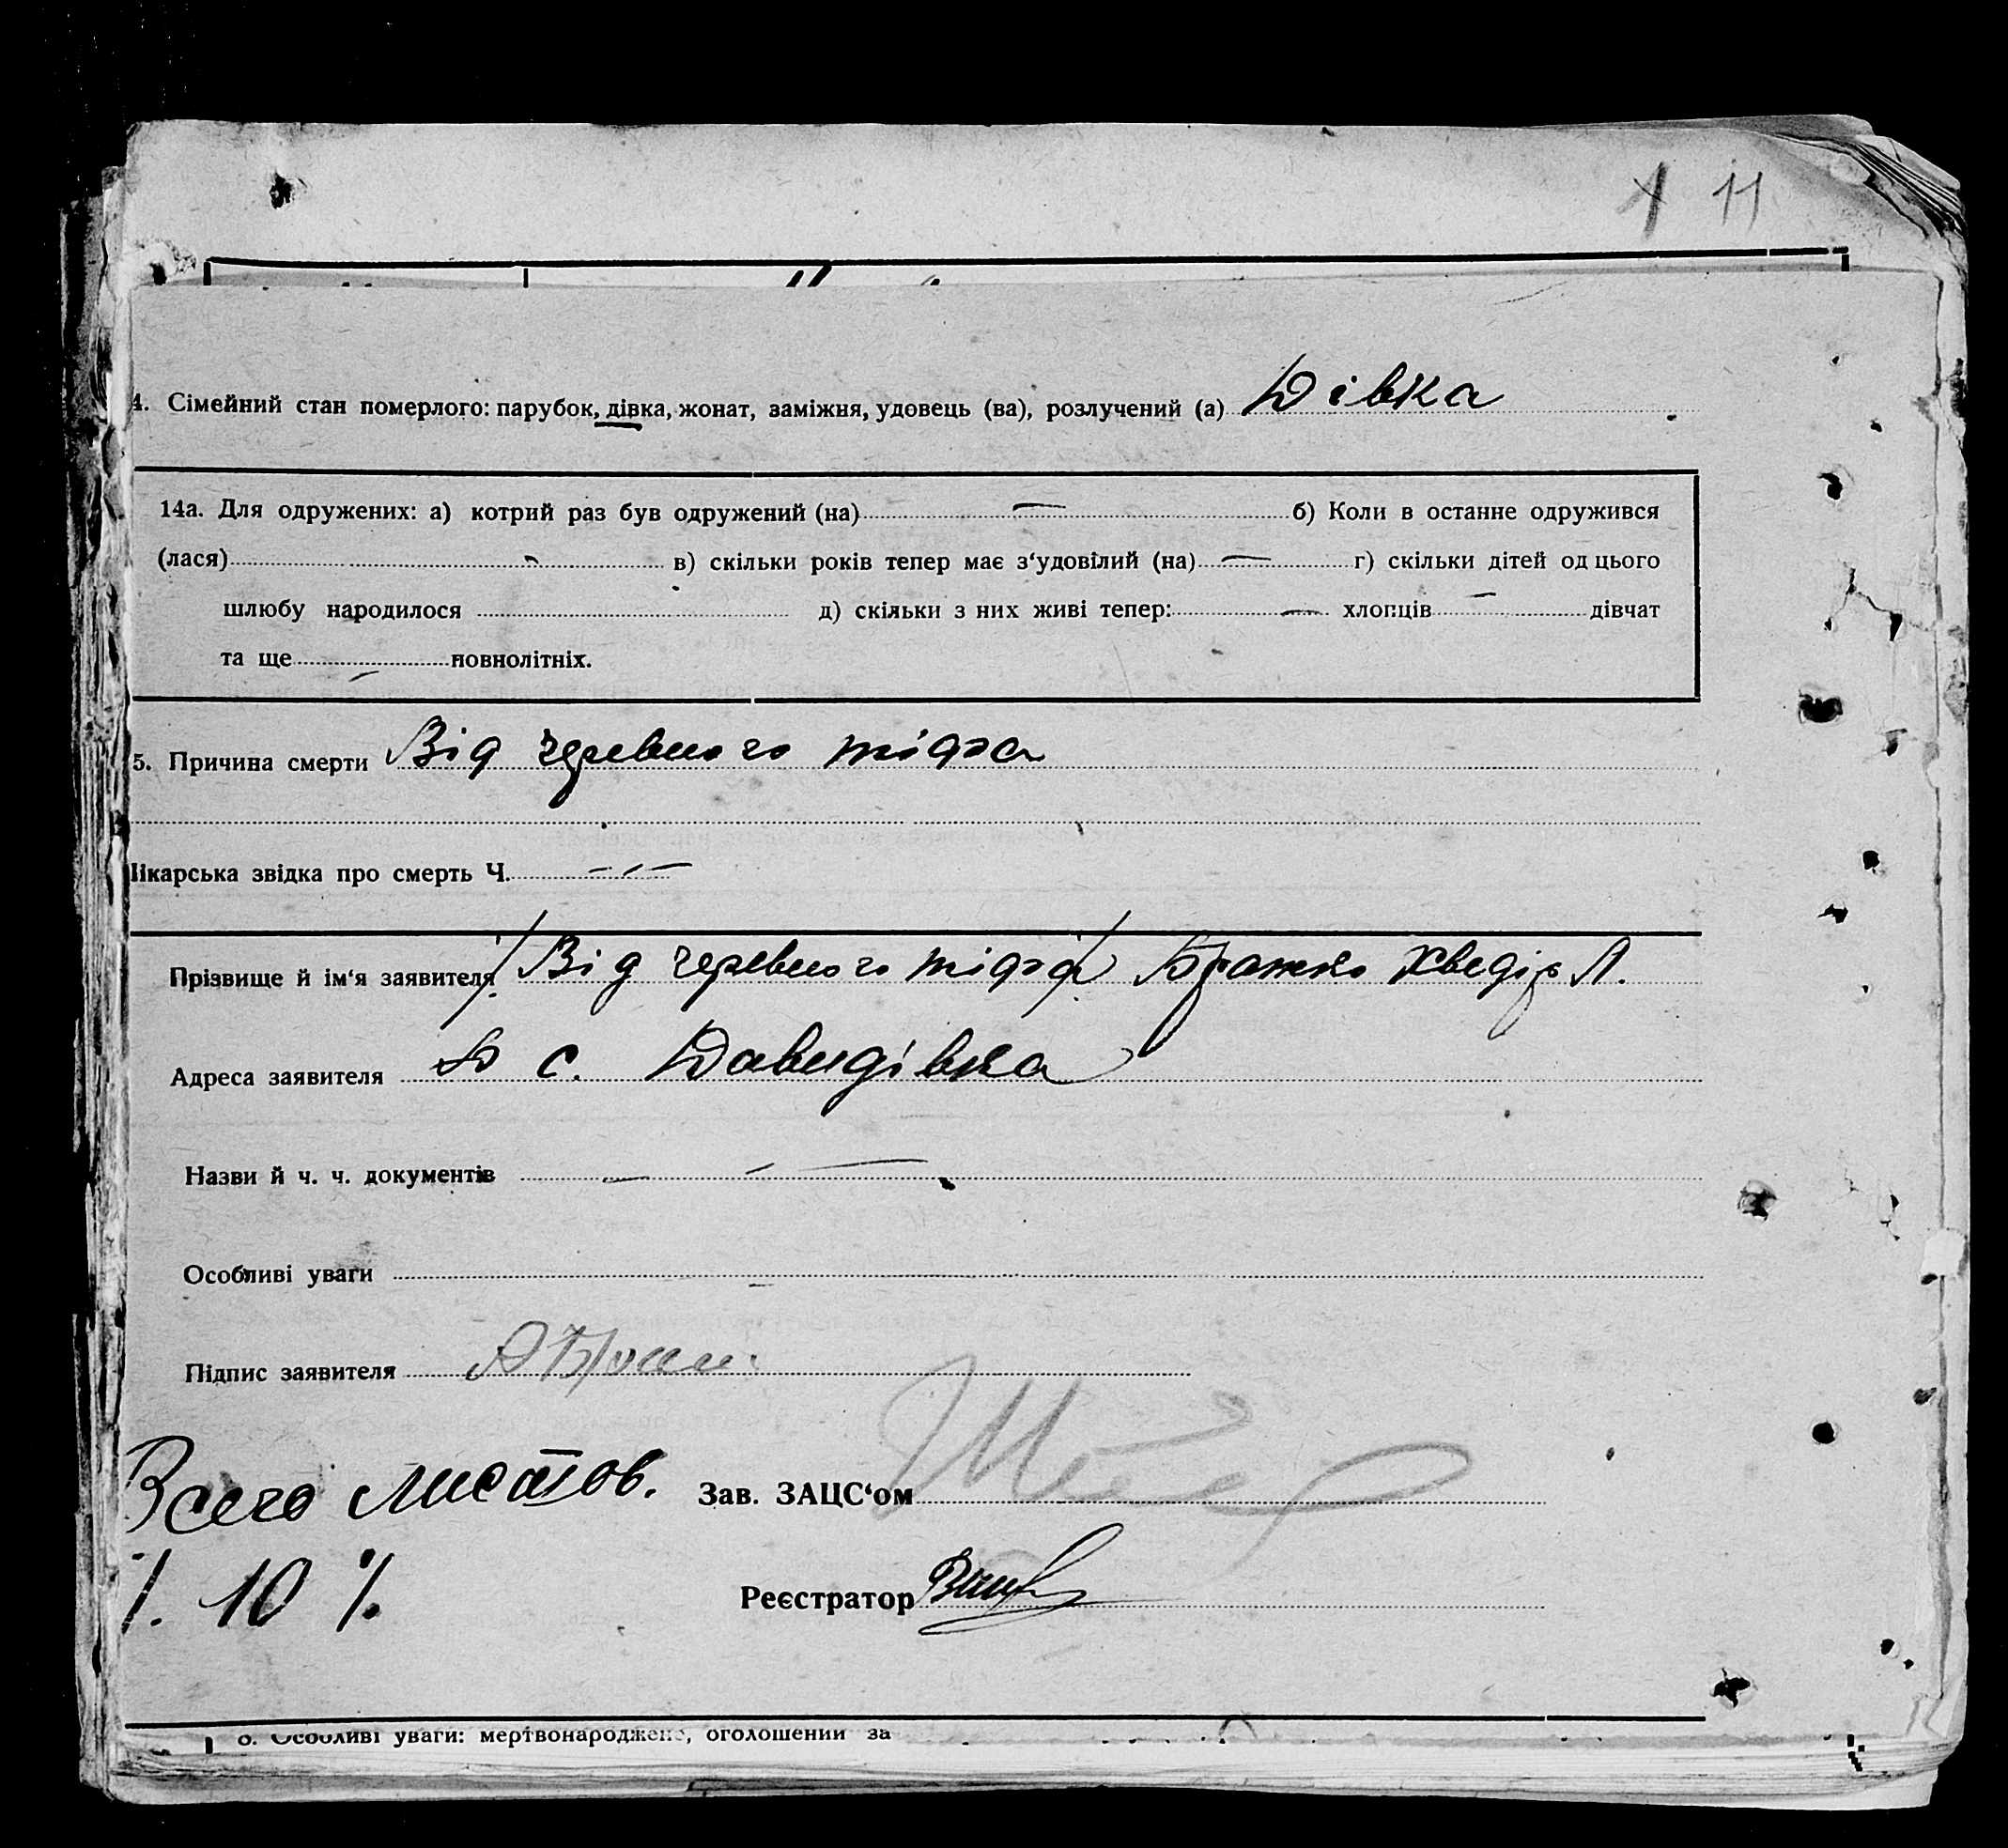 11
4. Сімейний стан померлого: парубок, дівка, жонат, заміжня, удовець (ва), розлучений (а) Дівка
14а. Для одружених: а) котрий раз був одружений (на) — б) Коли в останнє одружився
(лася) в) скільки років тепер має з‘удовілий (на) — г) скільки дітей од цього
шлюбу народилося д) скільки з них живі тепер: — хлопців — дівчат
та ще повнолітніх.
5. Причина смерти Від черевного тіфа
Лікарська звідка про смерть Ч. — — —
Прізвище й ім‘я заявителя Від черевного тіфа Бражко Хведір Л.
Адреса заявителя с. Давидівка
Назви й ч. ч. документів — — —
Особливі уваги
Підпис заявителя
Всего листов. Зав. ЗАЦС‘ом
/. 10 /. Реєстратор
8. Особливі уваги: мертвонароджене, оголошений за